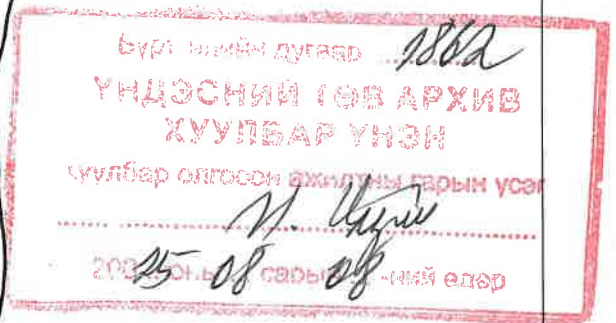 Бүртгэлийн дугаар 1862
ҮНДЭСНИЙ ТӨВ АРХИВ
ХУУЛБАР ҮНЭН
Хуулбар олгосон ажилтны гарын үсэг
2025 оны 08 сарын 08 -ний өдөр